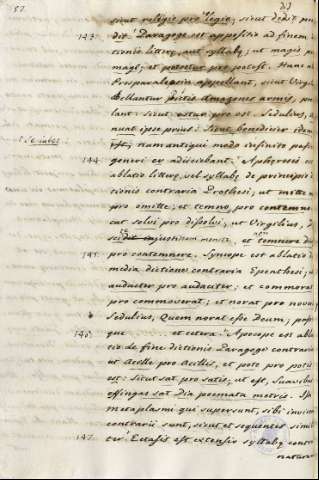 sicut relligio pro religio; sicut
143. Paragoge est appositio ad finem
tionis litterę, aut syllabę; ut magis pro
magè; et potestur pro potest. Hanc
Prosparalepsin appellant, sicut Virgil
Bellantur pictis Amazones armis, pro
lant: sicut pro est. Sedulius,
nuat ipse prius: Sicut benedicier idem
est; nam antiqui modo infinito pass
generi er adiiciebant. Aphęresis
144. ablatio litterę, vel syllabę de principio
tionis contraria Prothesi, ut mitte
pro omitte; et temno, pro contemno
solvi pro dissolvi, ut Virgilius, D
justitiam moniti, et temnere di
145. pro contemnere. Syncope est ablatio
media dictione contraria Epenthesi;
audacter pro audaciter; et commorat
pro commoverat; et norat pro nove
Sedulius, Quem norat esse Deum; pos
146. que et cetera. Apocope est abla
tio de fine dictionis Paragogę contraria
ut Acille pro Acillis, et pote pro potis
est: Sicut sat pro satis; ut est, Suavibus
effingas sat dia poemata metris.
metaplasmi qui supersunt, sibi invicem
contrarii sunt, sicut et sequentes
147. ter. Ectasis est extensio syllabę contra
natura